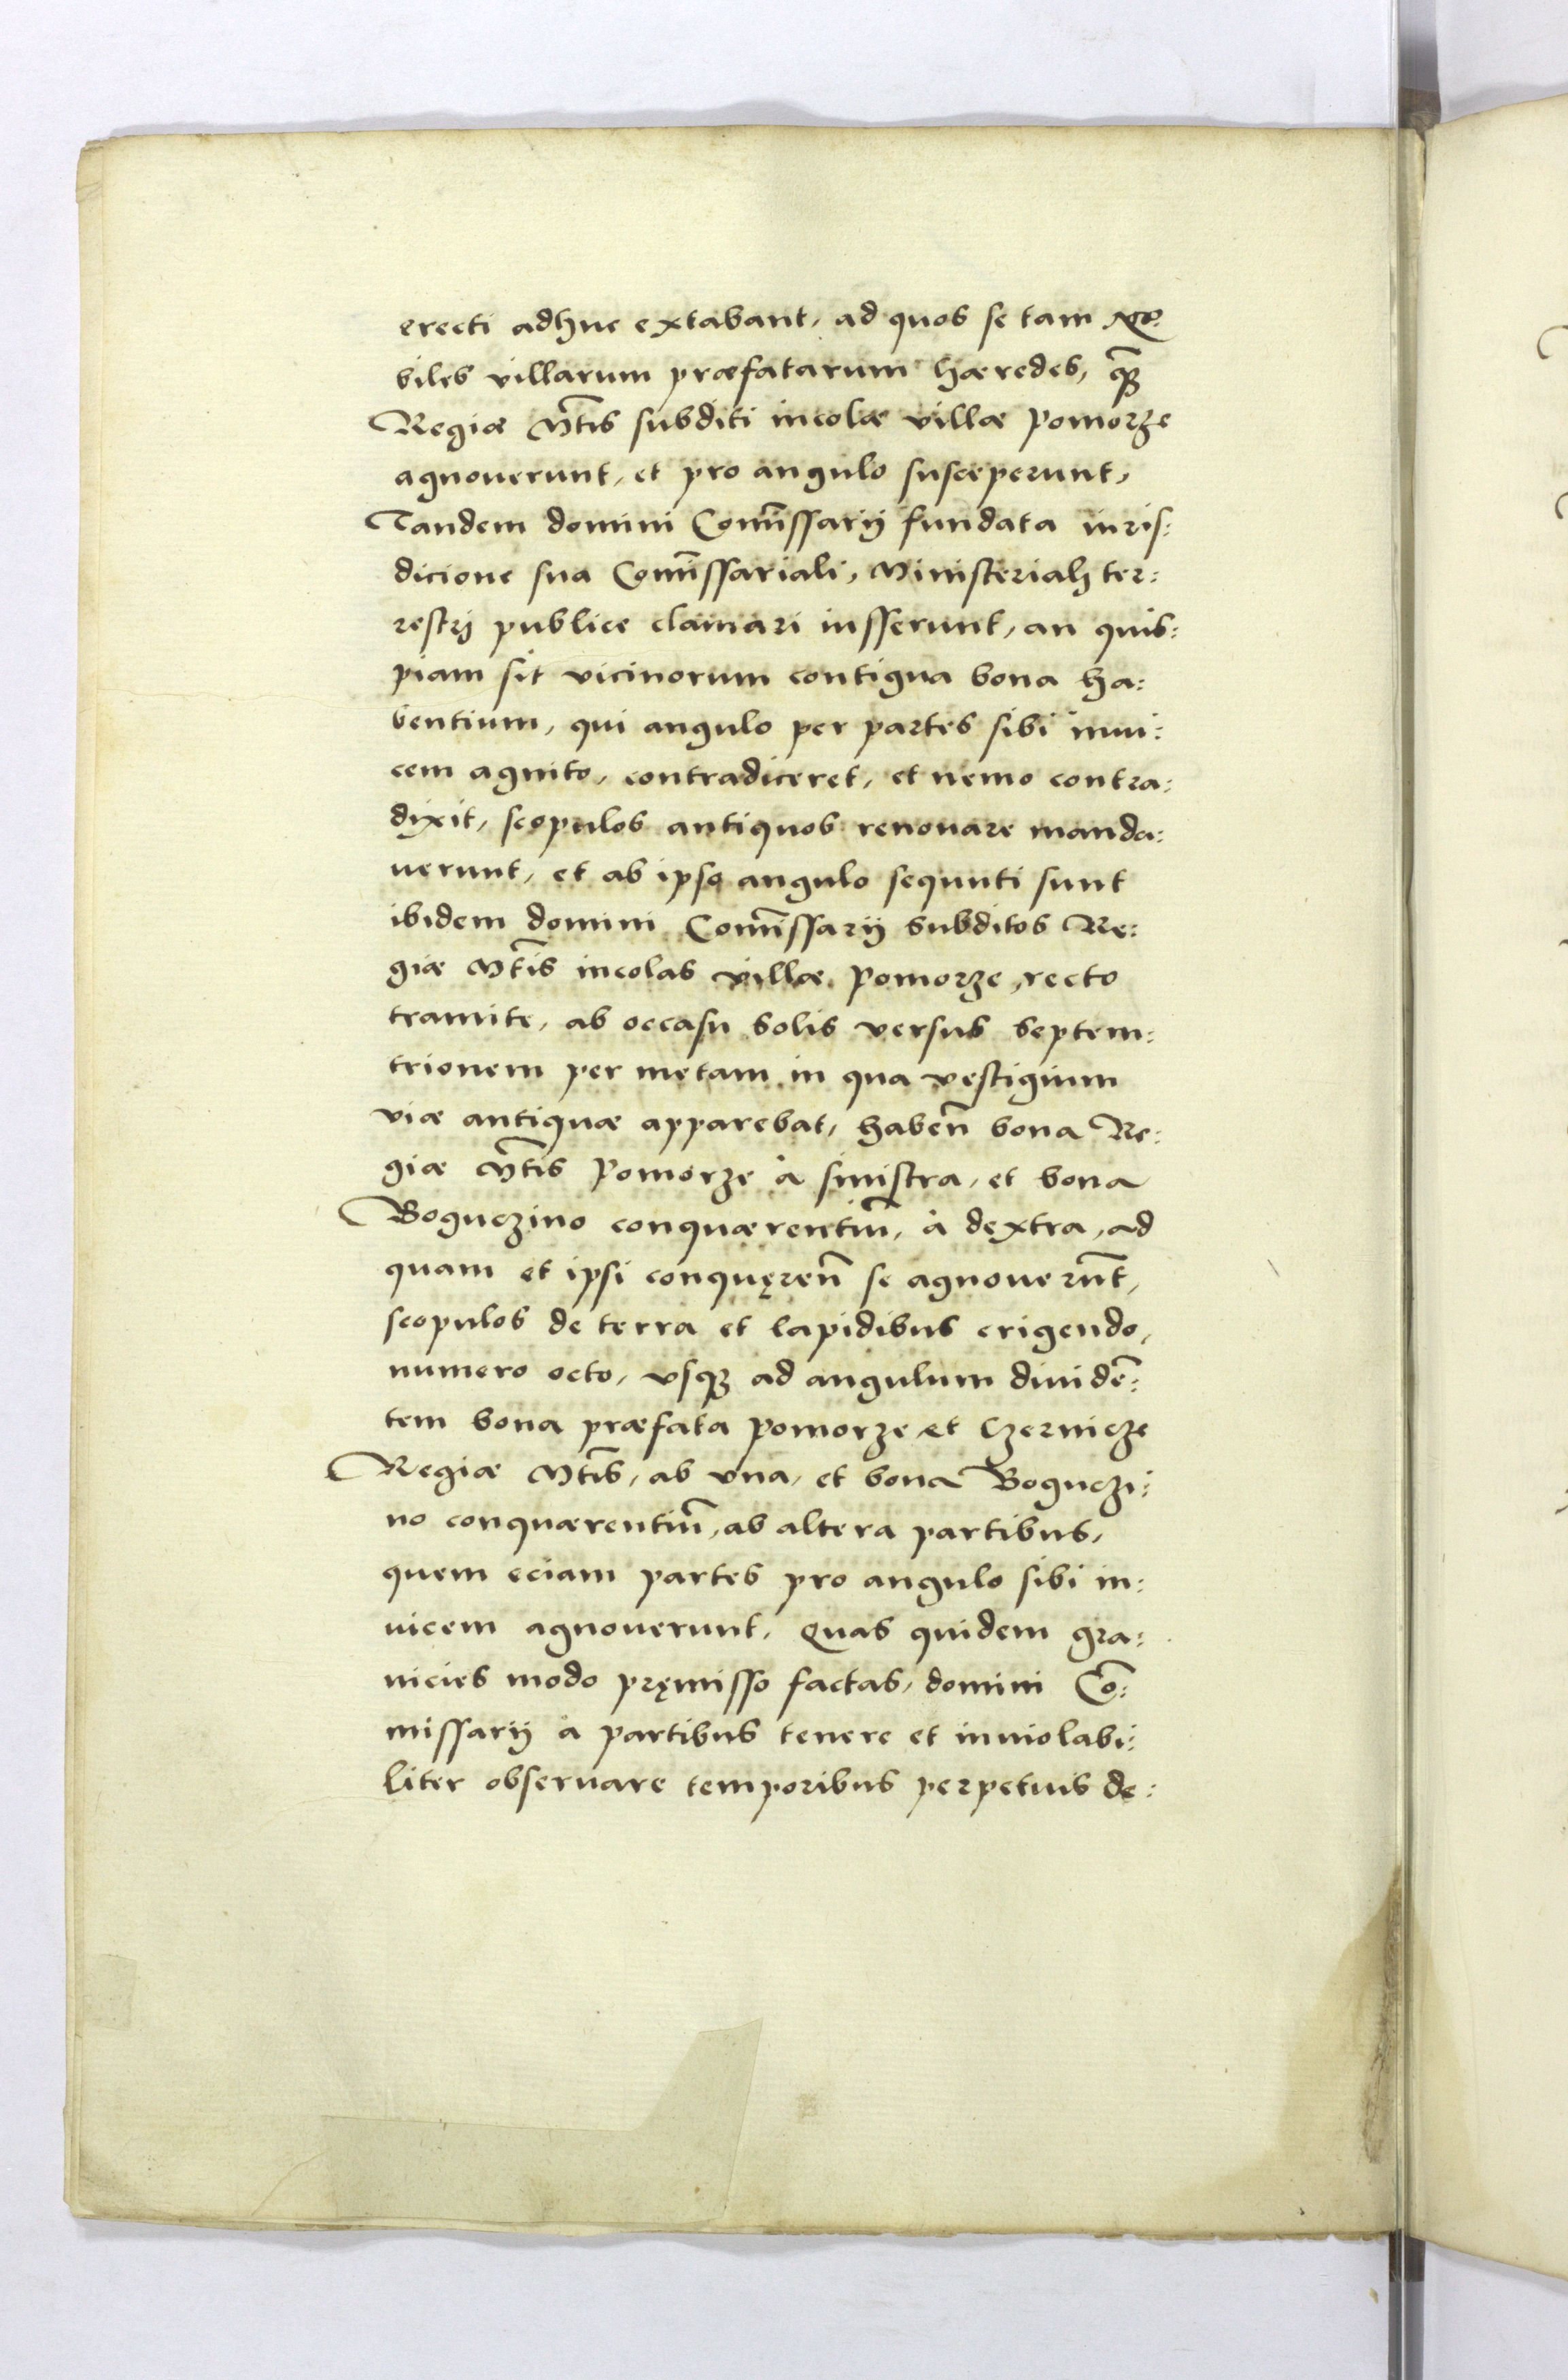 erecti adhuc extabant, ad quos se tam No:
biles villarum præfatarum hæredes, q̃ꝫ
Regiæ M̃tis subditi incolæ villæ Pomorze
agnouerunt, et pro angulo susceperunt,
Tandem domini Com̃issarij fundata iuris:
dicione sua Com̃issariali, Ministeriali ter:
restrj publice clamari iusserunt, an quis:
piam sit vicinorum contigua bona ha:
bentium, qui angulo per partes sibi inui:
cem agnito, contradiceret, et nemo contra:
dixit, scopulos antiquos renouare manda:
uerunt, et ab ipso angulo sequuti sunt
ibidem domini Com̃issarij subditos Re:
giæ M̃tis incolas villæ Pomorze, recto
tramite, ab occasu solis versus septem:
trionem per metam in qua vestigium
viæ antiquæ apparebat, habeñ bona Re:
giæ M̃tis Pomorze à sinistra, et bona
Boguczino conquærentiũ, à dextra, ad
quam et ipsi conquęreñ se agnouerũt,
scopulos de terra et lapidibus erigendo,
numero octo, vsqꝫ ad angulum diuidẽ:
tem bona præfata Pomorze et Czernicze
Regiæ M̃tis, ab vna, et bona Boguczi:
no conquærentiũ, ab altera partibus,
quem eciam partes pro angulo sibi in:
uicem agnouerunt, Quas quidem gra:
nicies modo pręmisso factas, domini Cõ:
missarij a partibus tenere et inuiolabi:
liter obseruare temporibus perpetuis de: